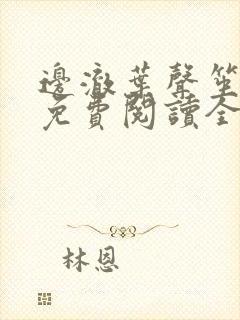 邊澈葉聲笙
免費閱讀全
林恩